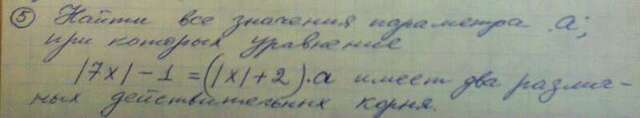 ⑤ Найти все значения параметра a,
при которых уравнение
|7x| - 1 = (|x| + 2)·a имеет два различ-
ных действительных корня.